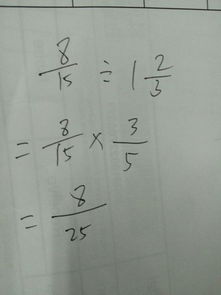 8/15 ÷ 1 2/3
= 8/15 × 3/5
= 8/25